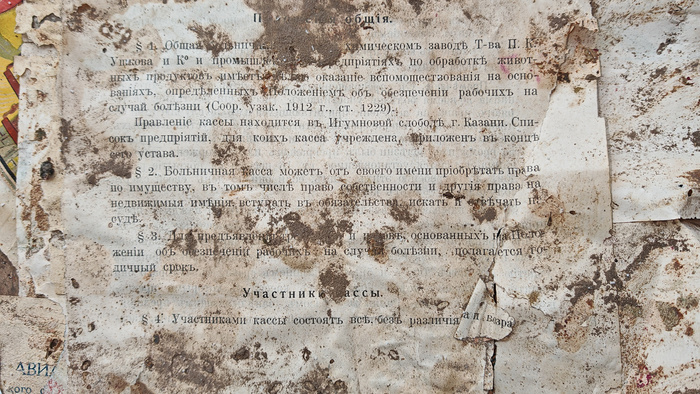 общія.
§ 1. Общая химическомъ заводѣ Т-ва П. К.
Ушкова и К° и промышле предпріятіяхъ по обработкѣ живот-
ныхъ продуктовъ имѣетъ оказаніе вспомоществованія на осно-
ваніяхъ, опредѣленныхъ Положеніемъ объ обезпеченіи рабочихъ на
случай болѣзни (Собр. узак. 1912 г., ст. 1229).
Правленіе кассы находится въ Игумновой слободѣ г. Казани. Спи-
сокъ предпріятій, для коихъ касса учреждена, приложенъ въ концѣ
его устава.
§ 2. Больничная касса можетъ отъ своего имени пріобрѣтать права
по имуществу, въ томъ числѣ право собственности и другія права на
недвижимыя имѣнія вступать въ обязательства, искать и отвѣчать на
судѣ.
§ 3. Для предъявленія и основанныхъ на Поло-
женіи объ обезпеченіи рабочихъ на случай болѣзни, полагается го-
дичный срокъ.
Участники кассы.
§ 4. Участниками кассы состоятъ всѣ, безъ различія а и возра
АВИЛ
кого